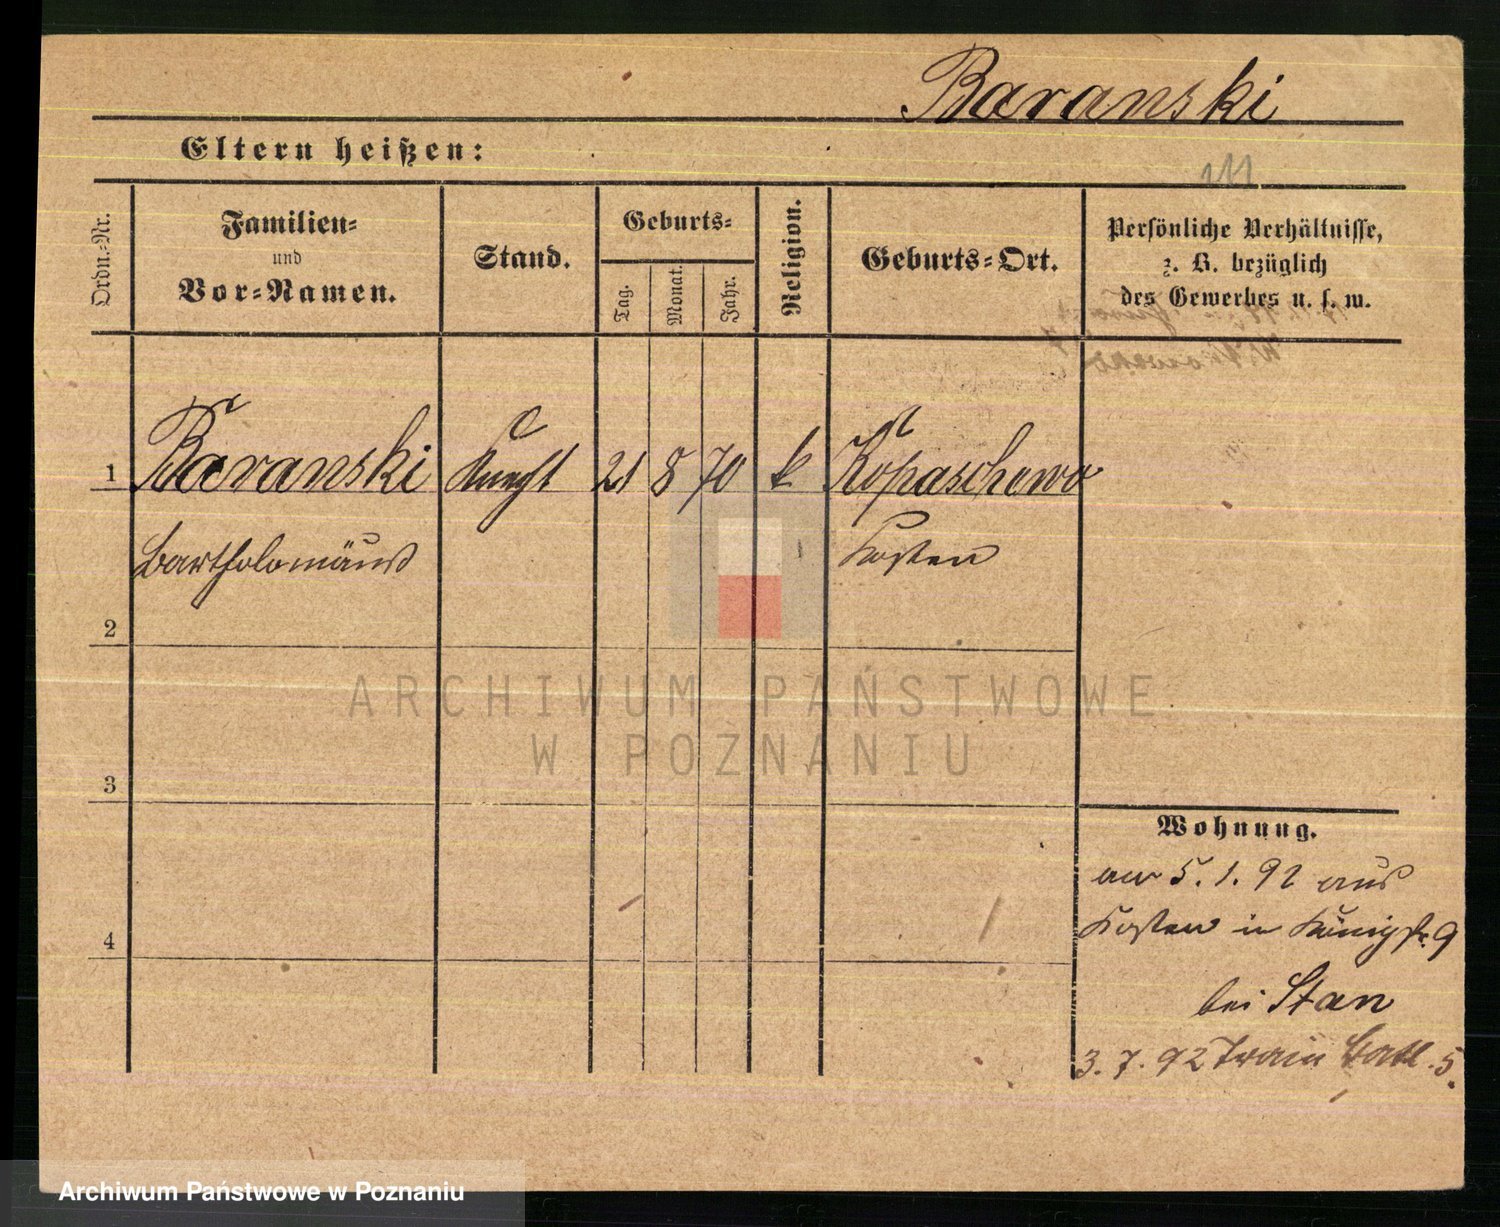 Baranski
Eltern heißen:
Ordn.-Nr.
Familien-
und
Vor-Namen.
Stand.
Geburts-
Tag.
Monat.
Jahr.
Religion.
Geburts-Ort.
Persönliche Verhältnisse,
z. B. bezüglich
des Gewerbes u. s. w.
1 Baranski Knecht 21 8 70 k Kopaschewo
Bartholomäus Kosten
2
3
4
Wohnung.
am 5. 1. 92 aus
Kosten in Königstr. 9
bei Stan
3. 7. 92 Train Batl. 5.
ARCHIWUM PAŃSTWOWE
W POZNANIU
Archiwum Państwowe w Poznaniu